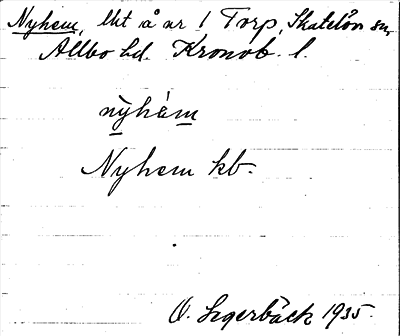 Nyhem, lht å nr 1 Torp, Skatelöv sn,
Allbo hd. Kronob. l.
nỳhèm
Nyhem kb.
O. Segerbäck 1935.